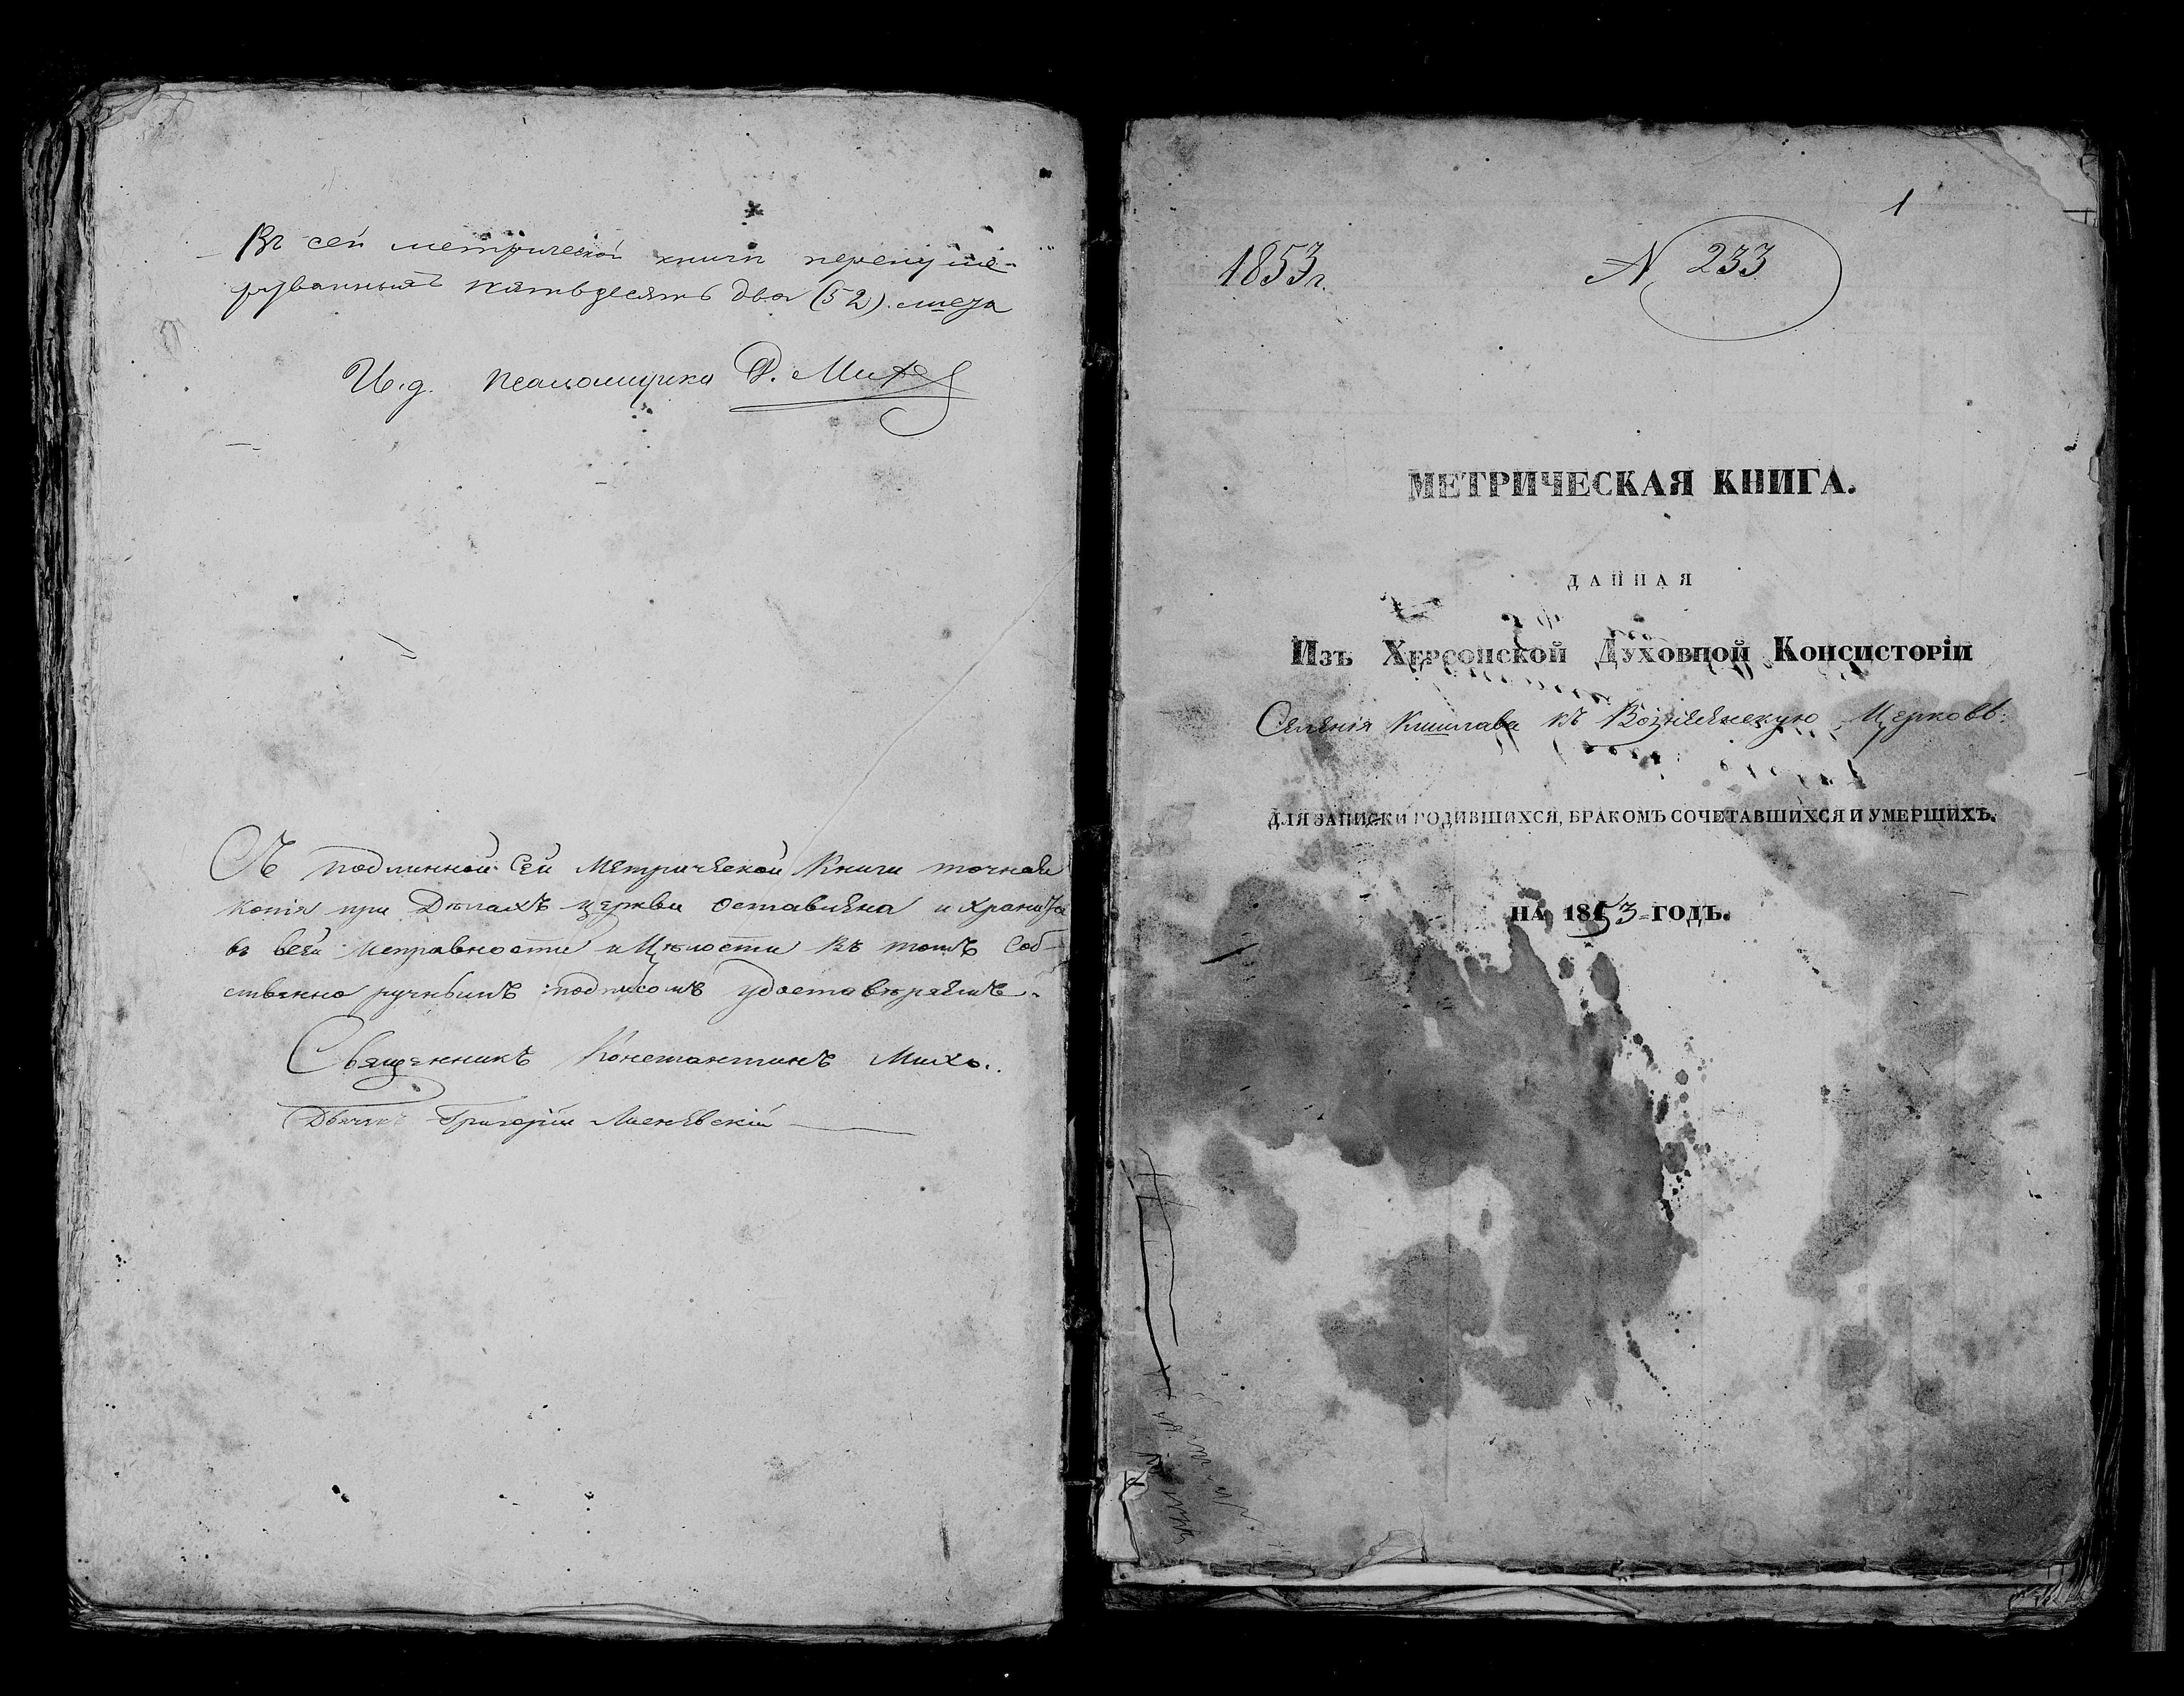 Въ сей метрической книги перенуме-
рованныхъ пятьдесятъ два (52) листа
И.д. псаломщика Ѳ. Михо
Съ подлинной сей Метрической Книги точная
копія при Дѣлахъ церкви оставлена и хранится
въ всей исправности и Цѣлости въ томъ соб-
ственно ручнымъ подписомъ удостовѣряемъ.
Священникъ Константинъ Михо..
Дьячекъ Григорій
1
1853 г.
N 233
МЕТРИЧЕСКАЯ КНИГА.
ДАННАЯ
Изъ Херсонской Духовной Консисторіи
Селенія Кишлава въ Вознесенскую Церковь.
ДЛЯ ЗАПИСКИ РОДИВШИХСЯ, БРАКОМЪ СОЧЕТАВШИХСЯ И УМЕРШИХЪ.
НА 1853 ГОДЪ.